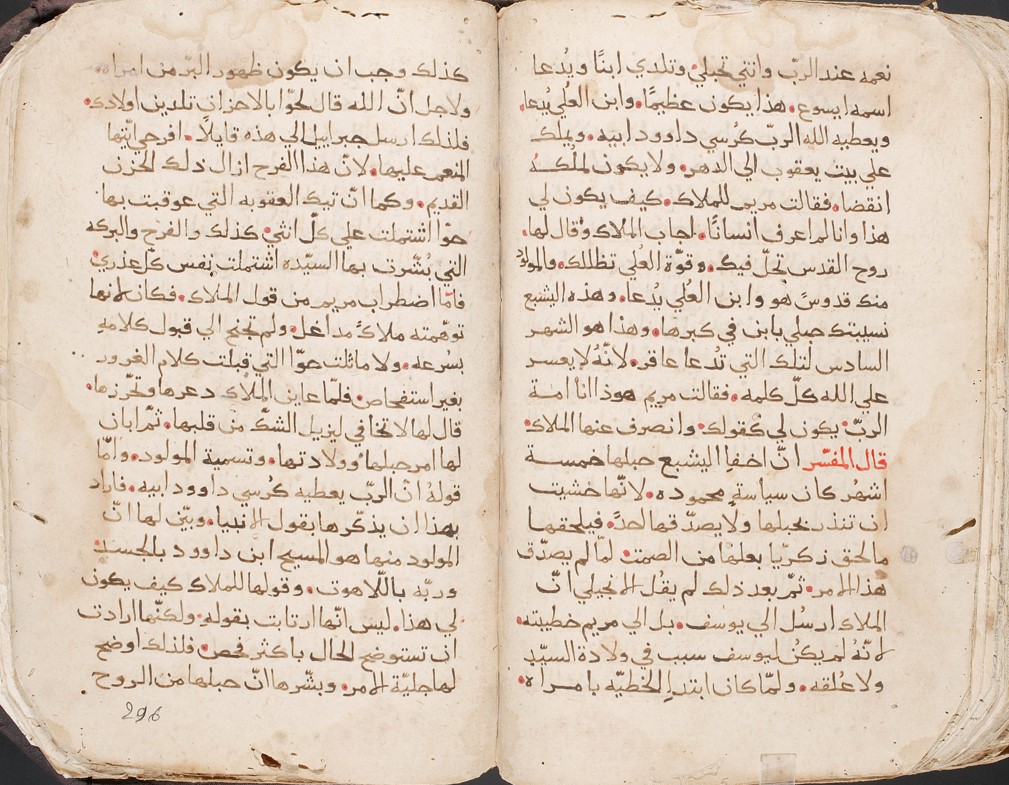 نعمه عند الربّ وانتي تحبلي وتلدي ابنًا ويُدعا
اسمه ايسوع. هذا يكون عظيمًا. وابن العُلي يُدعا.
ويعطيه الله الربّ كرُسي داوود ابيه. ويملك
علي بيت يعقوب الي الدهر. ولا يكون لملكهُ
انقضا. فقالت مريم للملاك. كيف يكون لي
هذا وانا لم اعرف انسانًا. اجاب الملاك وقال لها.
روح القدس تحلّ فيك. وقوّة العُلي تظللك. والمولود
منك قدوسً هو وابن العُلي يُدعا. وهذه اليشبع
نسيبتك حبلي بابن في كبرها. وهذا هو الشهر
السادس لتلك التي تُدعا عاقر. لانّهُ لا يعسر
علي الله كلّ كلمه. فقالت مريم هوذا انا امة
الربّ يكون لي كقولك. وانصرف عنها الملاك.
قال المفسّر انّ اخفا اليشبع حبلها خمسة
اشهُر كان سياسةٍ محموده. لانّها خشيت
ان تنذر بحبلها ولا يصدّقها احدً. فيلحقها
ما لحق زكريّا بعلها من الصمت. لمّا لم يصدّق
هذا الامر. ثمّ بعد ذلك لم يقُل الانجيلي انّ
الملاك ارسُل الي يوسف. بل الي مريم خطيبته.
لانّهُ لم يكنُ ليوسف سبب في ولادة السيّد
ولا عُلقه. ولمّا كان ابتدا الخطيّه بامراه.
كذلك وجب ان يكون ظهور البرّ من امراه.
ولاجل انّ الله قال لحوّا بالاحزان تلدين اولادك.
فلذلك ارسل جبراييل الي هذه قايلاً. افرحي ايّتها
المنعم عليها. لانّ هذا الفرح ازال ذلك الحزن
القديم. وكما انّ تيك العقوبه التي عوقبت بها
حوّا اشتملت علي كلّ انثي كذلك والفرح والبركه
التي بُشّرت بها السيّده اشتملت نفس كلّ عذري.
فامّا اضطراب مريم من قول الملاك. فكان لانها
توهّمته ملاكً مداغل. ولم تجنح الي قبول كلامهِ
بسُرعه. ولا ماثلت حوّا التي قبلت كلام الغرور
بغير استفحاص. فلمّا عاين الملاك دعرها وتحّرزها.
قال لها لا تخافي ليزيل الشكّ من قلبها. ثمّ ابان
لها امر حبلها وولادتها. وتسمية المولود. وامّا
قولهُ انّ الربّ يعطيه كرُسي داوود ابيه. فاراد
بهذا ان يذكّرها بقول الانبيا. وبيّن لها انّ
المولود منها هو المسيح ابن داوود بالجسد
وربّه باللّاهوت. وقولها للملاك كيف يكون
لي هذا. ليس انّها ارتابت بقوله. ولكنّها ارادت
ان تستوضح الحال باكثر فحص. فلذلك اوضح
لها جليّة الامر. وبشّرها انّ حبلها من الروح
296